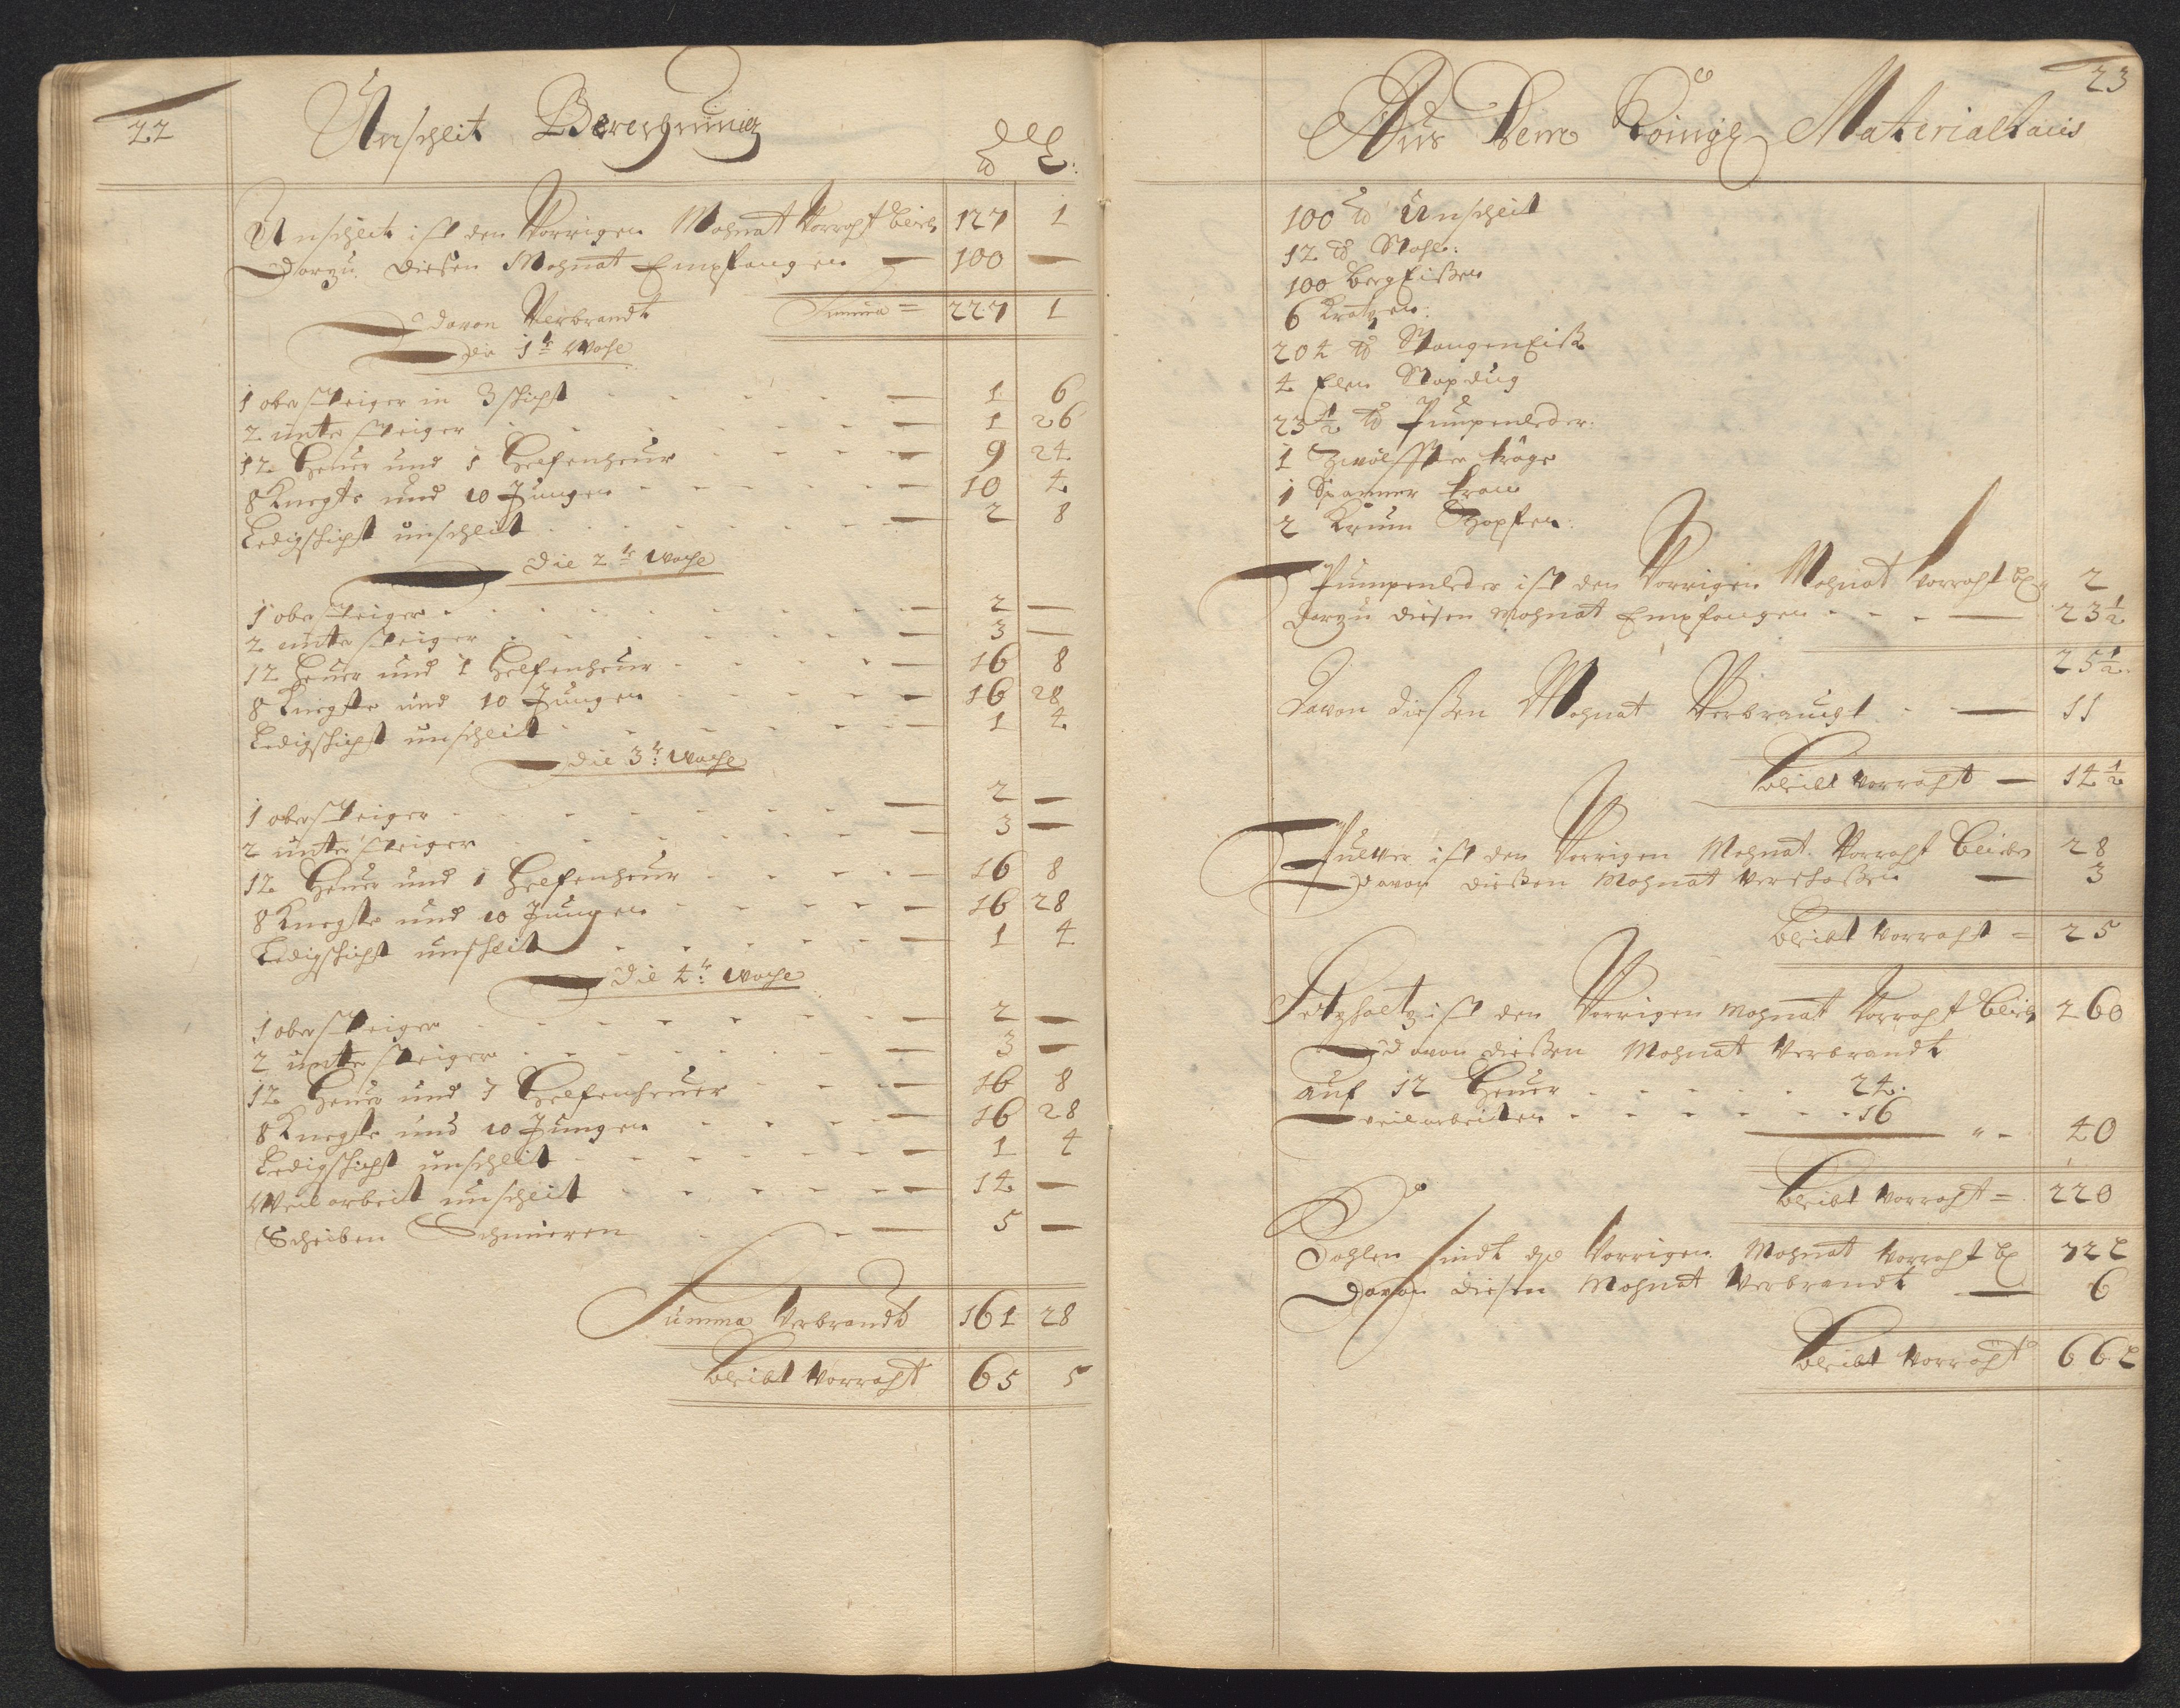 22
Unschleit Berechnung
℔ L:
Unschleit ist den Vorrigen Mohnat Vorraht blieb 127 1
Darzu diesen Mohnat Empfangen — 100 —
Summa = 227 1
Davon Verbrandt
Die 1te Woche
1 obersteiger in 3 schicht — 1 6
2 untersteiger — 1 26
12 Heuer und 1 Helfenheur — 9 24
8 Knegte und 10 Jungen — 10 4
Ledigschicht unschleit — 2 8
Die 2te Woche
1 obersteiger — 2 —
2 untersteiger — 3 —
12 Heuer und 1 Helfenheur — 16 8
8 Knegte und 10 Jungen — 16 28
Ledigschicht unschleit — 1 4
Die 3te Woche
1 obersteiger — 2 —
2 untersteiger — 3 —
12 Heuer und 1 Helfenheur — 16 8
8 Knegte und 10 Jungen — 16 28
Ledigschicht unschleit — 1 4
Die 4te Woche
1 obersteiger — 2 —
2 untersteiger — 3 —
12 Heuer und 1 Helfenheuer — 16 8
8 Knegte und 10 Jungen — 16 28
Ledigschicht unschleit — 1 4
Weilarbeit unschleit — 14 —
Scheiben Schmieren — 5 —
Summa Verbrandt 161 28
bleibt Vorraht 65 5
23
Aus Dem Königl Materialhaus
100 ℔ Unschleit
12 ℔ Stahl:
100 bergEissen
6 Kratzen:
204 ℔ StangenEiß
4 Elen
23 1/2 ℔ Pumpenleder:
1 Zwölffter
1 Spanner
2 Krum Zapfen:
Pumpenleder ist den Vorrigen Mohnat vorraht bl 2
Darzu diesen Mohnat Empfangen — 23 1/2
25 1/2
Davon diessen Mohnat Verbraucht — 11
bleibt vorraht — 14 1/2
Pulver ist den Vorrigen Mohnat Vorraht blieb 28
Davon diessen Mohnat verschossen — 3
bleibt vorraht = 25
Setzholtz ist den Vorrigen Mohnat Vorraht blieb 260
Davon diessen Mohnat Verbrandt
auf 12 Heuer 24.
weilarbeiten 16
40
bleibt vorraht = 220
Kohlen sindt den Vorrigen Mohnat vorraht bl 72 L
Davon diesen Mohnat Verbrandt — 6
bleibt vorraht 66 L